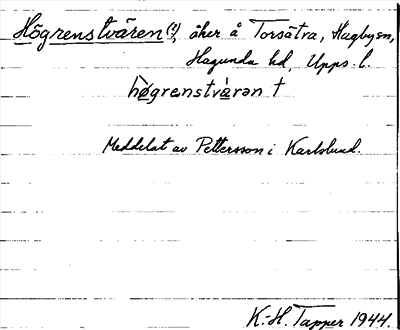 Högrenstvären(?), åker å Torsätra, Hagbysn,
Hagunda hd, Upps. l.
hø̀grenstvà̀rən †
Meddelat av Pettersson i Karlslund.
K.-H. Tapper 1944.